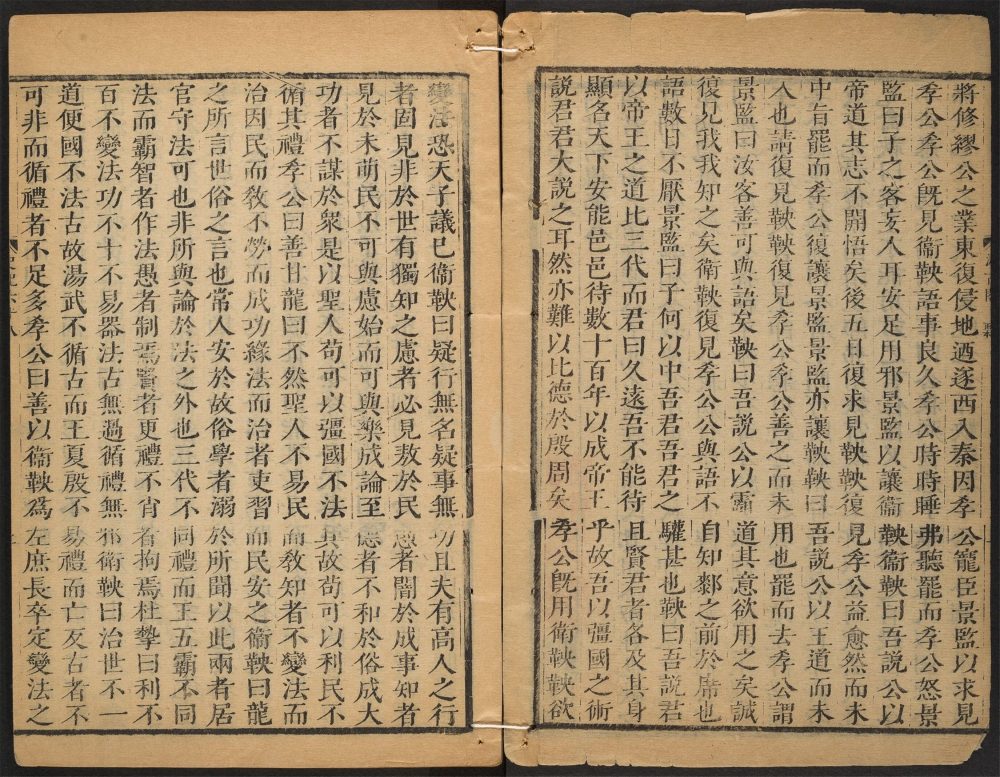 將修繆公之業東復侵地迺遂西入秦因孝公寵臣景監以求見
孝公孝公既見衞鞅語事良久孝公時時睡弗聽罷而孝公怒景
監曰子之客妄人耳安足用邪景監以讓衞鞅衞鞅曰吾說公以
帝道其志不開悟矣後五日復求見鞅鞅復見孝公益愈然而未
中旨罷而孝公復讓景監景監亦讓鞅鞅曰吾說公以王道而未
入也請復見鞅鞅復見孝公孝公善之而未用也罷而去孝公謂
景監曰汝客善可與語矣鞅曰吾說公以霸道其意欲用之矣誠
復見我我知之矣衛鞅復見孝公公與語不自知厀之前於席也
語數日不厭景監曰子何以中吾君吾君之驩甚也鞅曰吾說君
以帝王之道比三代而君曰久遠吾不能待且賢君者各及其身
顯名天下安能邑邑待數十百年以成帝王乎故吾以彊國之術
說君君大說之耳然亦難以比德於殷周矣孝公既用衛鞅鞅欲
變法恐天子議已衞鞅曰疑行無名疑事無功且夫有高人之行
者固見非於世有獨知之慮者必見敖於民愚者闇於成事知者
見於未萌民不可與慮始而可與樂成論至德者不和於俗成大
功者不謀於衆是以聖人苟可以彊國不法其故苟可以利民不
循其禮孝公曰善甘龍曰不然聖人不易民而敎知者不變法而
治因民而敎不勞而成功緣法而治者吏習而民安之衞鞅曰龍
之所言世俗之言也常人安於故俗學者溺於所聞以此兩者居
官守法可也非所與論於法之外也三代不同禮而王五霸不同
法而霸智者作法愚者制焉賢者更禮不肖者拘焉杜摯曰利不
百不變法功不十不易器法古無過循禮無邪衞鞅曰治世不一
道便國不法古故湯武不循古而王夏殷不易禮而亡反古者不
可非而循禮者不足多孝公曰善以衞鞅爲左庶長卒定變法之